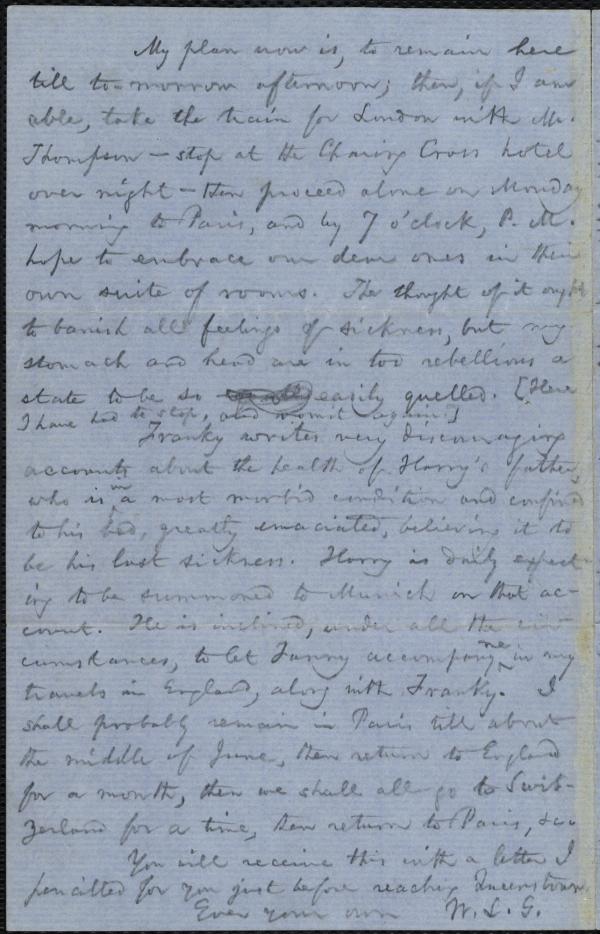 My plan now is, to remain here
till to-morrow afternoon; then, if I am
able, take the train for London with Mr.
Thompson — stop at the Charing Cross hotel
over night — then proceed alone on Monday
morning to Paris, and by 7 o'clock, P. M.
hope to embrace our dear ones in their
own suite of rooms. The thought of it ought
to banish all feelings of sickness, but my
stomach and head are in too rebellious a
state to be so easily quelled. [Here
I have had to stop, and vomit again.]
Franky writes very discouraging
accounts about the health of Harry's father,
who is in a most morbid condition and confined
to his bed, greatly emaciated, believing it to
be his last sickness. Harry is daily expect-
ing to be summoned to Munich on that ac-
count. He is inclined, under all the cir-
cumstances, to let Fanny accompany me in my
travels in England, along with Franky. I
shall probably remain in Paris till about
the middle of June, then return to England
for a month, then we shall all go to Swit-
zerland for a time, then return to Paris, &c.
You will receive this with a letter I
pencilled for you just before reaching Queenstown.
Ever your own W. L. G.